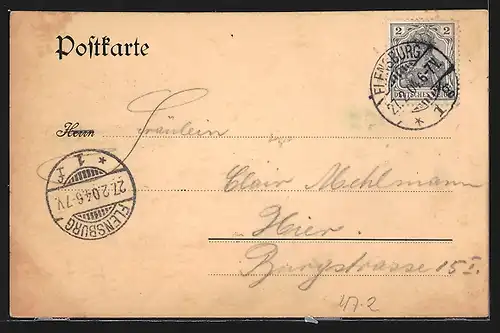 Postkarte
2 2
DEUTSCHES REICH
FLENSBURG
27.2.04. 6-7 V.
* 1 g
Herrn Fräulein
Clair Mehlmann
Hier.
Burgstrasse 15 I.
47.2
FLENSBURG
27.2.04. 6-7 V.
* 1 f